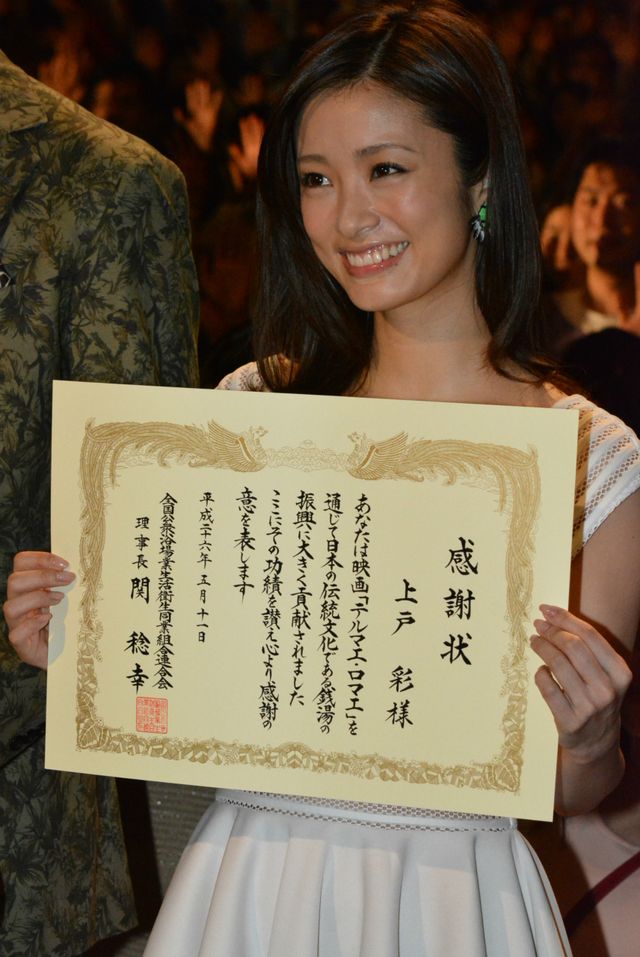 感謝状
上戸 彩 様
あなたは映画「テルマエ・ロマエ」を
通じて日本の伝統文化である銭湯の
振興に大きく貢献されました
ここにその功績を讃え心より感謝の
意を表します
平成二十六年五月十一日
全国公衆浴場業生活衛生同業組合連合会
理事長 関 稔幸